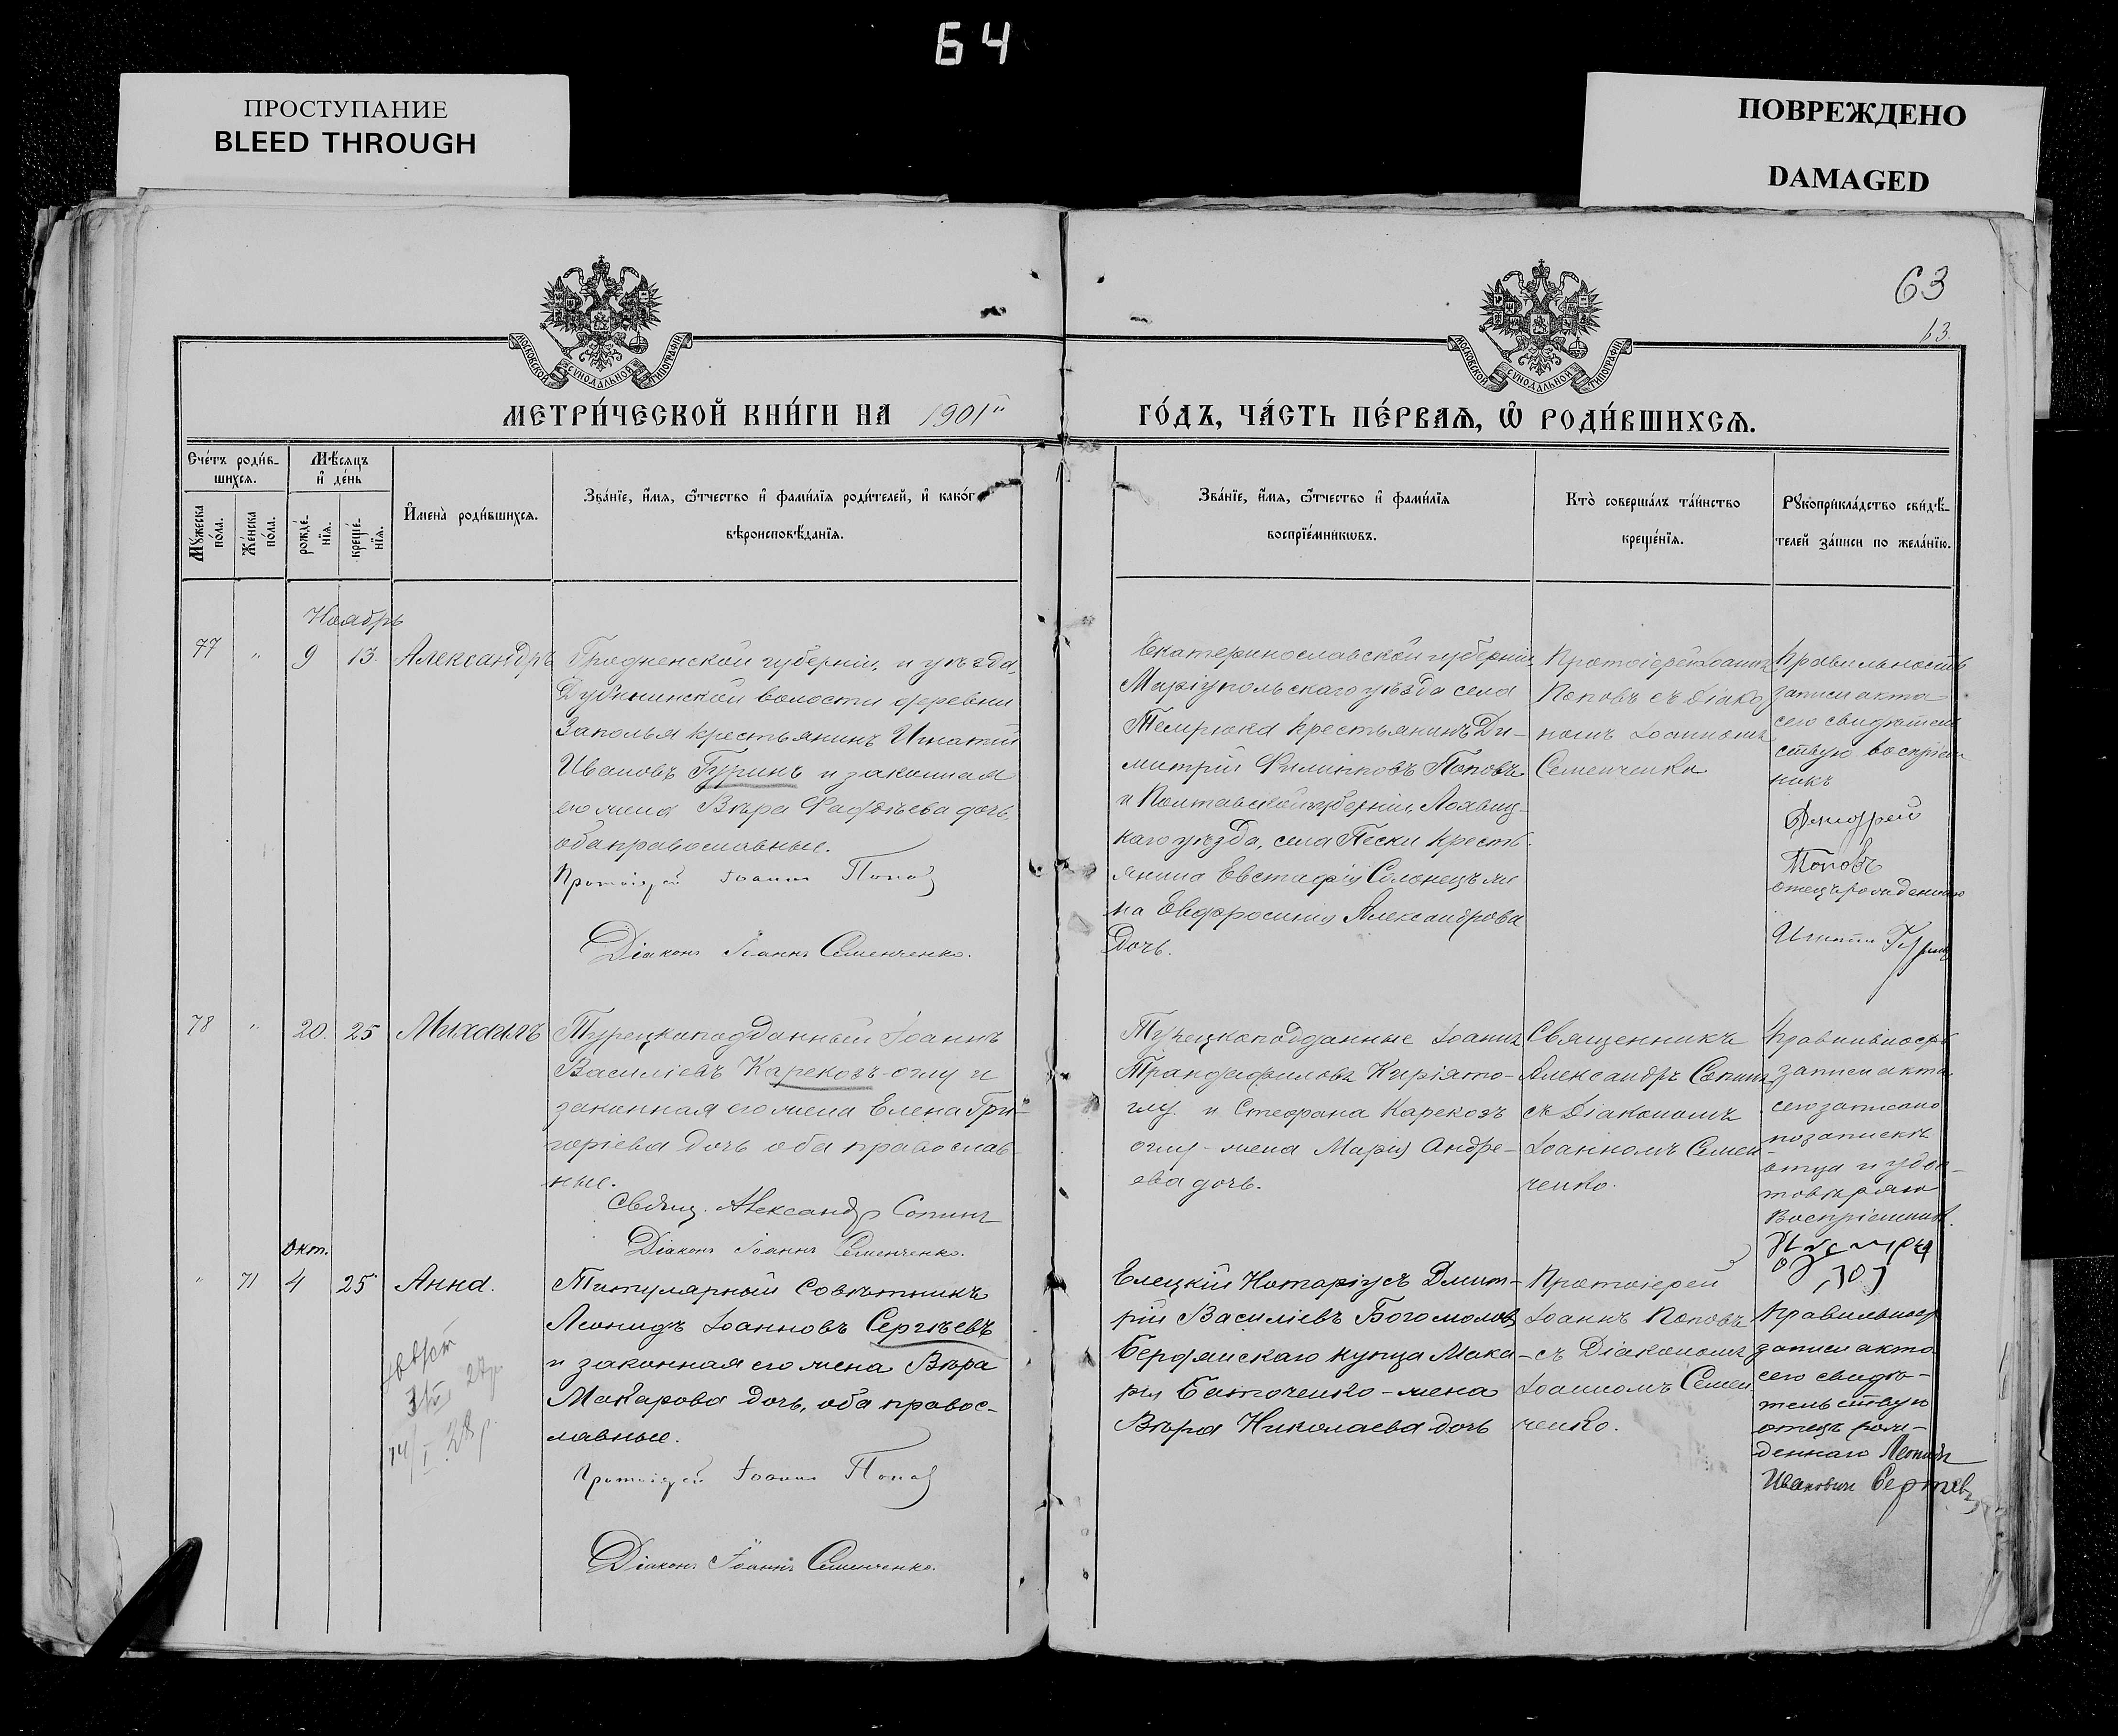 64
ПРОСТУПАНИЕ
BLEED THROUGH
ПОВРЕЖДЕНО
DAMAGED
63
63.
МОСКОВСКОЙ СУНОДАЛЬНОЙ ТИПОГРАФІИ
МОСКОВСКОЙ СУНОДАЛЬНОЙ ТИПОГРАФІИ
МЕТРИ́ЧЕСКОЙ КНИ́ГИ НА 1901й
ГО́ДЪ, ЧА́СТЬ ПЕ́РВАѦ, Ѡ҆ РОДИ́ВШИХСѦ.
Сче́тъ роди́в-
шихсѧ.
Мѣ́сѧцъ
и҆ де́нь
Мꙋ́жеска
по́ла.
Же́нска
по́ла.
рожде́-
нїѧ.
креще́-
нїѧ.
И҆мена̀ роди́вшихсѧ.
Зва́нїе, и҆́мѧ, ѻ҆́тчество и҆ фами́лїѧ роди́телей, и҆ како́г
вѣроисповѣ́данїѧ.
Зва́нїе, и҆́мѧ, ѻ҆́тчество и҆ фами́лїѧ
воспрїе́мникѡвъ.
Кто̀ соверша́лъ та́инство
креще́нїѧ.
Рꙋкоприкла́дство свидѣ́-
телей за́писи по жела́нїю.
Ноябрь
77 " 9 13. Александръ
Гродненской губерніи, и уѣзда,
волости деревни
Заполья крестьянинъ Игнатій
Ивановъ Гуринъ и законная
его жена Вѣра Фаддѣева дочь,
оба православные.
Протоіерей Іоаннъ Поповъ
Діаконъ Іоаннъ Семенченко.
Екатеринославской губерніи
Маріупольскаго уѣзда села
Темрюка крестьянинъ Ди-
митрій Филипповъ Поповъ
и Полтавской губерніи, Лохвиц-
каго уѣзда, села Пески кресть
янина Евстафія Солонецъ же
на Евфросинія Александрова
Дочь.
Протоіерей Іоаннъ
Поповъ съ Діако
номъ Іоанномъ
Семенченко
Правильность
записи акта
сего свидѣтель
ствую воспріем
никъ
Поповъ
отецъ рожденнаго
Игнатій Гуринъ
78 " 20. 25 Михаилъ
Турецкоподданный Іоаннъ
Василіевъ Карекозъ-оглу и
законная его жена Елена Гри-
горіева дочь оба православ-
ные.
Свящ. Александръ Сопинъ
Діаконъ Іоаннъ Семенченко.
Турецкоподданные Іоаннъ
Трандафиловъ Киріято-
глу и Стефана Карекозъ
оглу - жена Марія Андре-
ева дочь.
Священникъ
Александръ Сопинъ
съ Діакономъ
Іоанномъ Семен-
ченко.
Правильность
записи акта
сего записано
по запискѣ
отца и удос-
товѣряю
Воспріемникъ.
Окт.
" 71 4 25 Анна.
Титулярный Совѣтникъ
Леонидъ Іоанновъ Сергѣевъ
и законная его жена Вѣра
Макарова дочь, оба правос-
лавные.
Протоіерей Іоаннъ Поповъ
Діаконъ Іоаннъ Семенченко.
Елецкій Нотаріусъ Дмит-
рій Василіевъ Богомоловъ
Бердянскаго купца Мака-
рія Баточенко - жена
Вѣра Николаева дочь
Протоіерей
Іоаннъ Поповъ
съ Діакономъ
Іоанномъ Семен
ченко.
Правильность
записи акта
сего свидѣ-
тельствую
отецъ рож-
деннаго Леонидъ
Ивановичъ Сергѣевъ